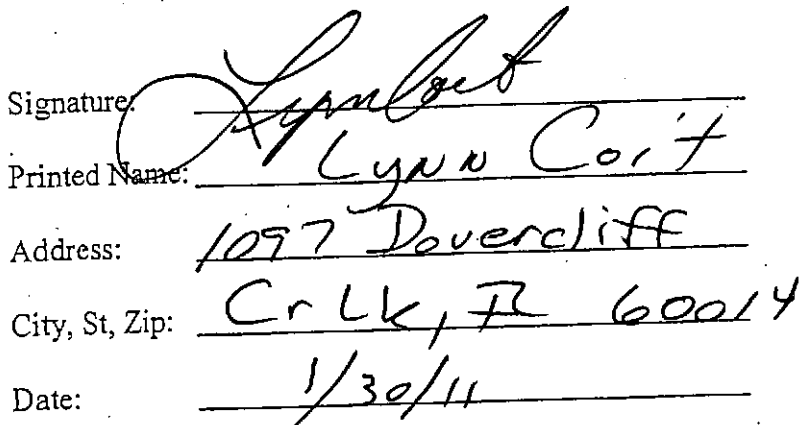 Signature: Lynn Coit
Printed Name: Lynn Coit
Address: 1097 Dovercliff
City, St, Zip: Cr Lk, IL 60014
Date: 1/30/11